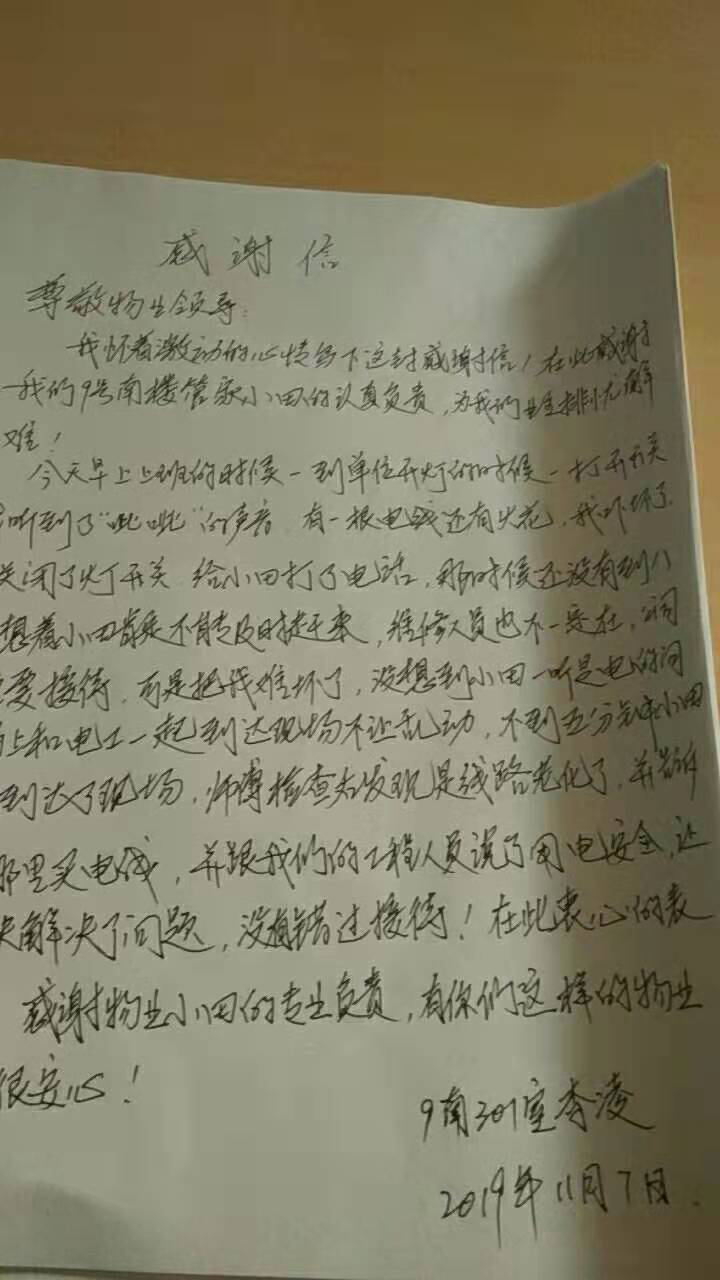 感谢信
尊敬物业领导：
我怀着激动的心情写下这封感谢信！在此感谢
我们9号南楼管家小田的认真负责，为我们业主排忧解
难！
今天早上上班的时候一到单位开灯的时候一打开开关
听到了“呲呲”的声音，有一根电线还有火花，我吓坏了
关闭了灯开关 给小田打了电话，那时候还没有到八
想着小田肯定不能及时赶过来，维修人员也不一定在，
要接待，可是把我难坏了，没想到小田一听是电的问
上和电工一起到达现场不让乱动，不到五分钟小田
到达了现场，师傅检查后发现是线路老化了，并告诉
那里买电线，并跟我们的工程人员说了用电安全，还
解决了问题，没有错过接待！在此衷心的表
感谢物业小田的专业负责，有你们这样的物业
很安心！
9南301室李凌
2019年11月7日.